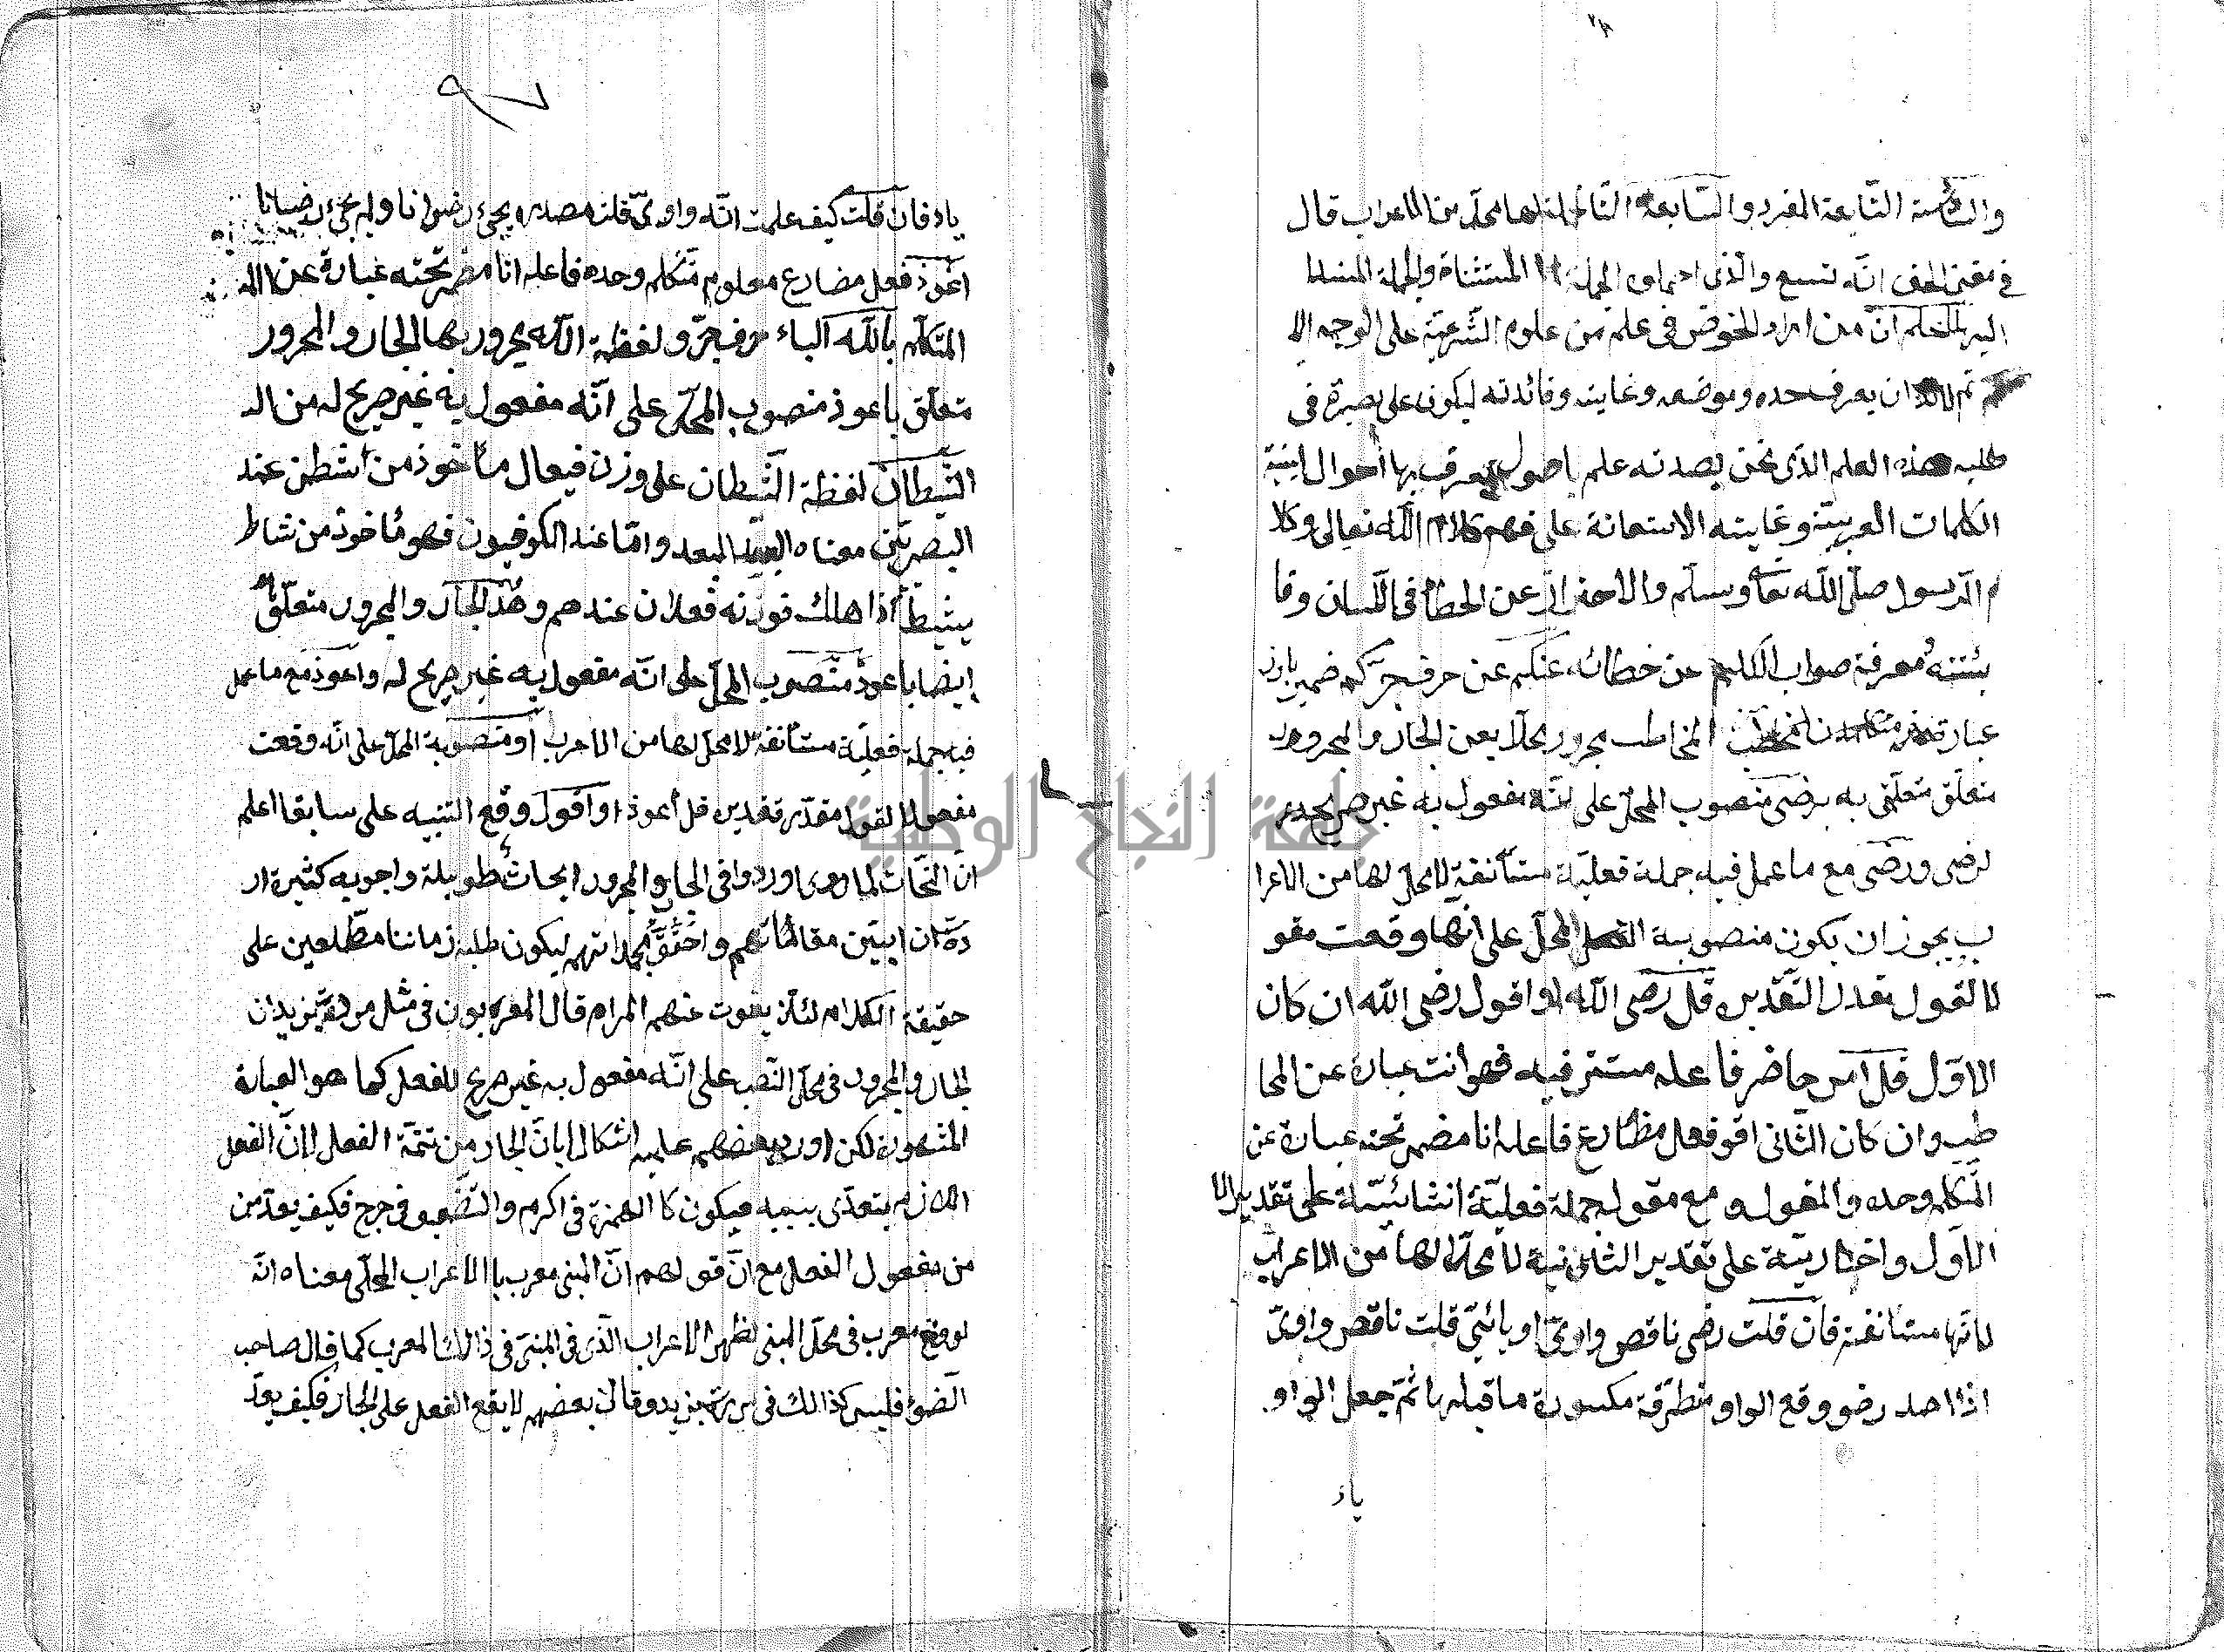 والسّادسة التّابعة المفرد والسّابعة التّابعة لجملة لها محلّ من الاعراب قال
في مغنى الحق انّه تسع والّذى اهملوه الجملة المستثناة والجملة المسند
اليه اعلم انّ من اراد الخوض فى علم من علوم الشّرعيّة على الوجه الا
تم لابد ان يعرف حده وموضعه وغايته وفائدته ليكون على بصيرة فى
طلبه هذه العلم الذى نحن بصدته علم باصول يعرف بها أحوال ابنية
الكلمات العربيّة وغايته الاستعانة على فهم كلام اللّه تعالى وكلا
م الرّسول صلّى اللّه تعا وسلّم والاحتراز عن الخطأ فى اللّسان وفا
ئتنه معرفة صواب الكليم عن خطائه عنكم عن حرف جرّ كم ضمير بارز
عبارة المخاطب مجرور محلا يعن الجار والمجرور
متعلّق متعلّق به برضى منصوب المحلّ على انّه مفعول به غير صريح
لرضى ورضى مع ما عمل فيه جملة فعليّة مستأنفة لا محلّ لها من الاعرا
ب يجوز ان يكون منصوبية المحلّ على انّها وقعت مقو
لا لقول مقدر التّقدير قل رضى اللّه او اقول رضى اللّه ان كان
الاوّل قل امر حاضر فاعله مستتر فيه فهو انت عبارة عن المخا
طب وان كان الثّانى اقو فعل مضارع فاعله انا مضمر تحته عبارة عن
المتكلم وحده والمقول و مع مقوله جملة فعليّة انشائيّة على تقدير الا
الأوّل واخباريّة على تقدير الثانية لا محلّ لها من الاعراب
لانّها مستانفة فان قلت رضى ناقص واوىّ او يائىّ قلت ناقص واوىّ
اذ اصله رضو وقع الواو متطرّفة مكسورة ما قبلها ثمّ جعل الواو
ياء
ياء فان قلت كيف علمت انّه واوىّ قلت مصدره يجئ رضوانا ولم يجئ رضيانا
اعوذ فعل مضارع معلوم متكلم وحده فاعله انا مضمر تحته عبارة عن
المتكلّم باللّه الباء حرف جرّ ولفظة اللّه مجرور بها الجار والمجرور
متعلّق باعوذ منصوب المحلّ على انّه مفعول به غير صريح له من الـ
الشّيطان لفظة الشّيطان على وزن فيعال مأخوذ من اشطن عند
البصريّين معناه البعد وامّا عند الكوفيون فهو مأخوذ من شاط
يشيط اذا هلك فوزنه فعلان عندهم وهذ الجار والمجرور متعلّق
ايضا باعوذ منصوب المحلّ على انّه مفعول به غير صريح له واعوذ مع ما عمل
فيه جملة فعليّة مستأنفة لا محلّ لها من الاعرب او منصوبة المحلّ على انّه وقعت
مفعولا لقول مقدّر تقديره قل أعوذ او اقول وقع التنبيه على سابقا اعلم
انّ النّحات لما اوردوا فى الجار والمجرور ابحاث طويلة واجوبه كثيرة ار
دة ان ابيّن مقالاتهم واحقّق مجملاتهم ليكون طلبه زماننا مطّلعين على
حقيقة الكلام لئلا يفوت عنهم المرام قال المعربون فى مثل مررت بزيد ان
الجار والمجرور فى محلّ النّصب على انّه مفعول به غير صريح للفعل كما هو العبارة
المشهورة لكن اورد بعضهم عليه اشكالا بانّ الجار من تتمّة الفعل لانّ الفعل
الازم يتعدّى بسببه فيكون كا الهمزة فى اكرم والتّضعيف فى فرح فكيف يعدّ من
من مفعول الفعل مع انّ قولهم انّ المبنى معرب با الاعراب المحلّى معناه انّه
لو وقع معرب فى محلّ المبنى لظهر الاعراب الّذى فى المبنىّ فى ذالك المعرب كما قال صاحب
الضّوء فليس كذالك فى مررت بزيد وقال بعضهم لا يقع الفعل على الجار فكيف يعدّ
جامعة النجاح الوطنية